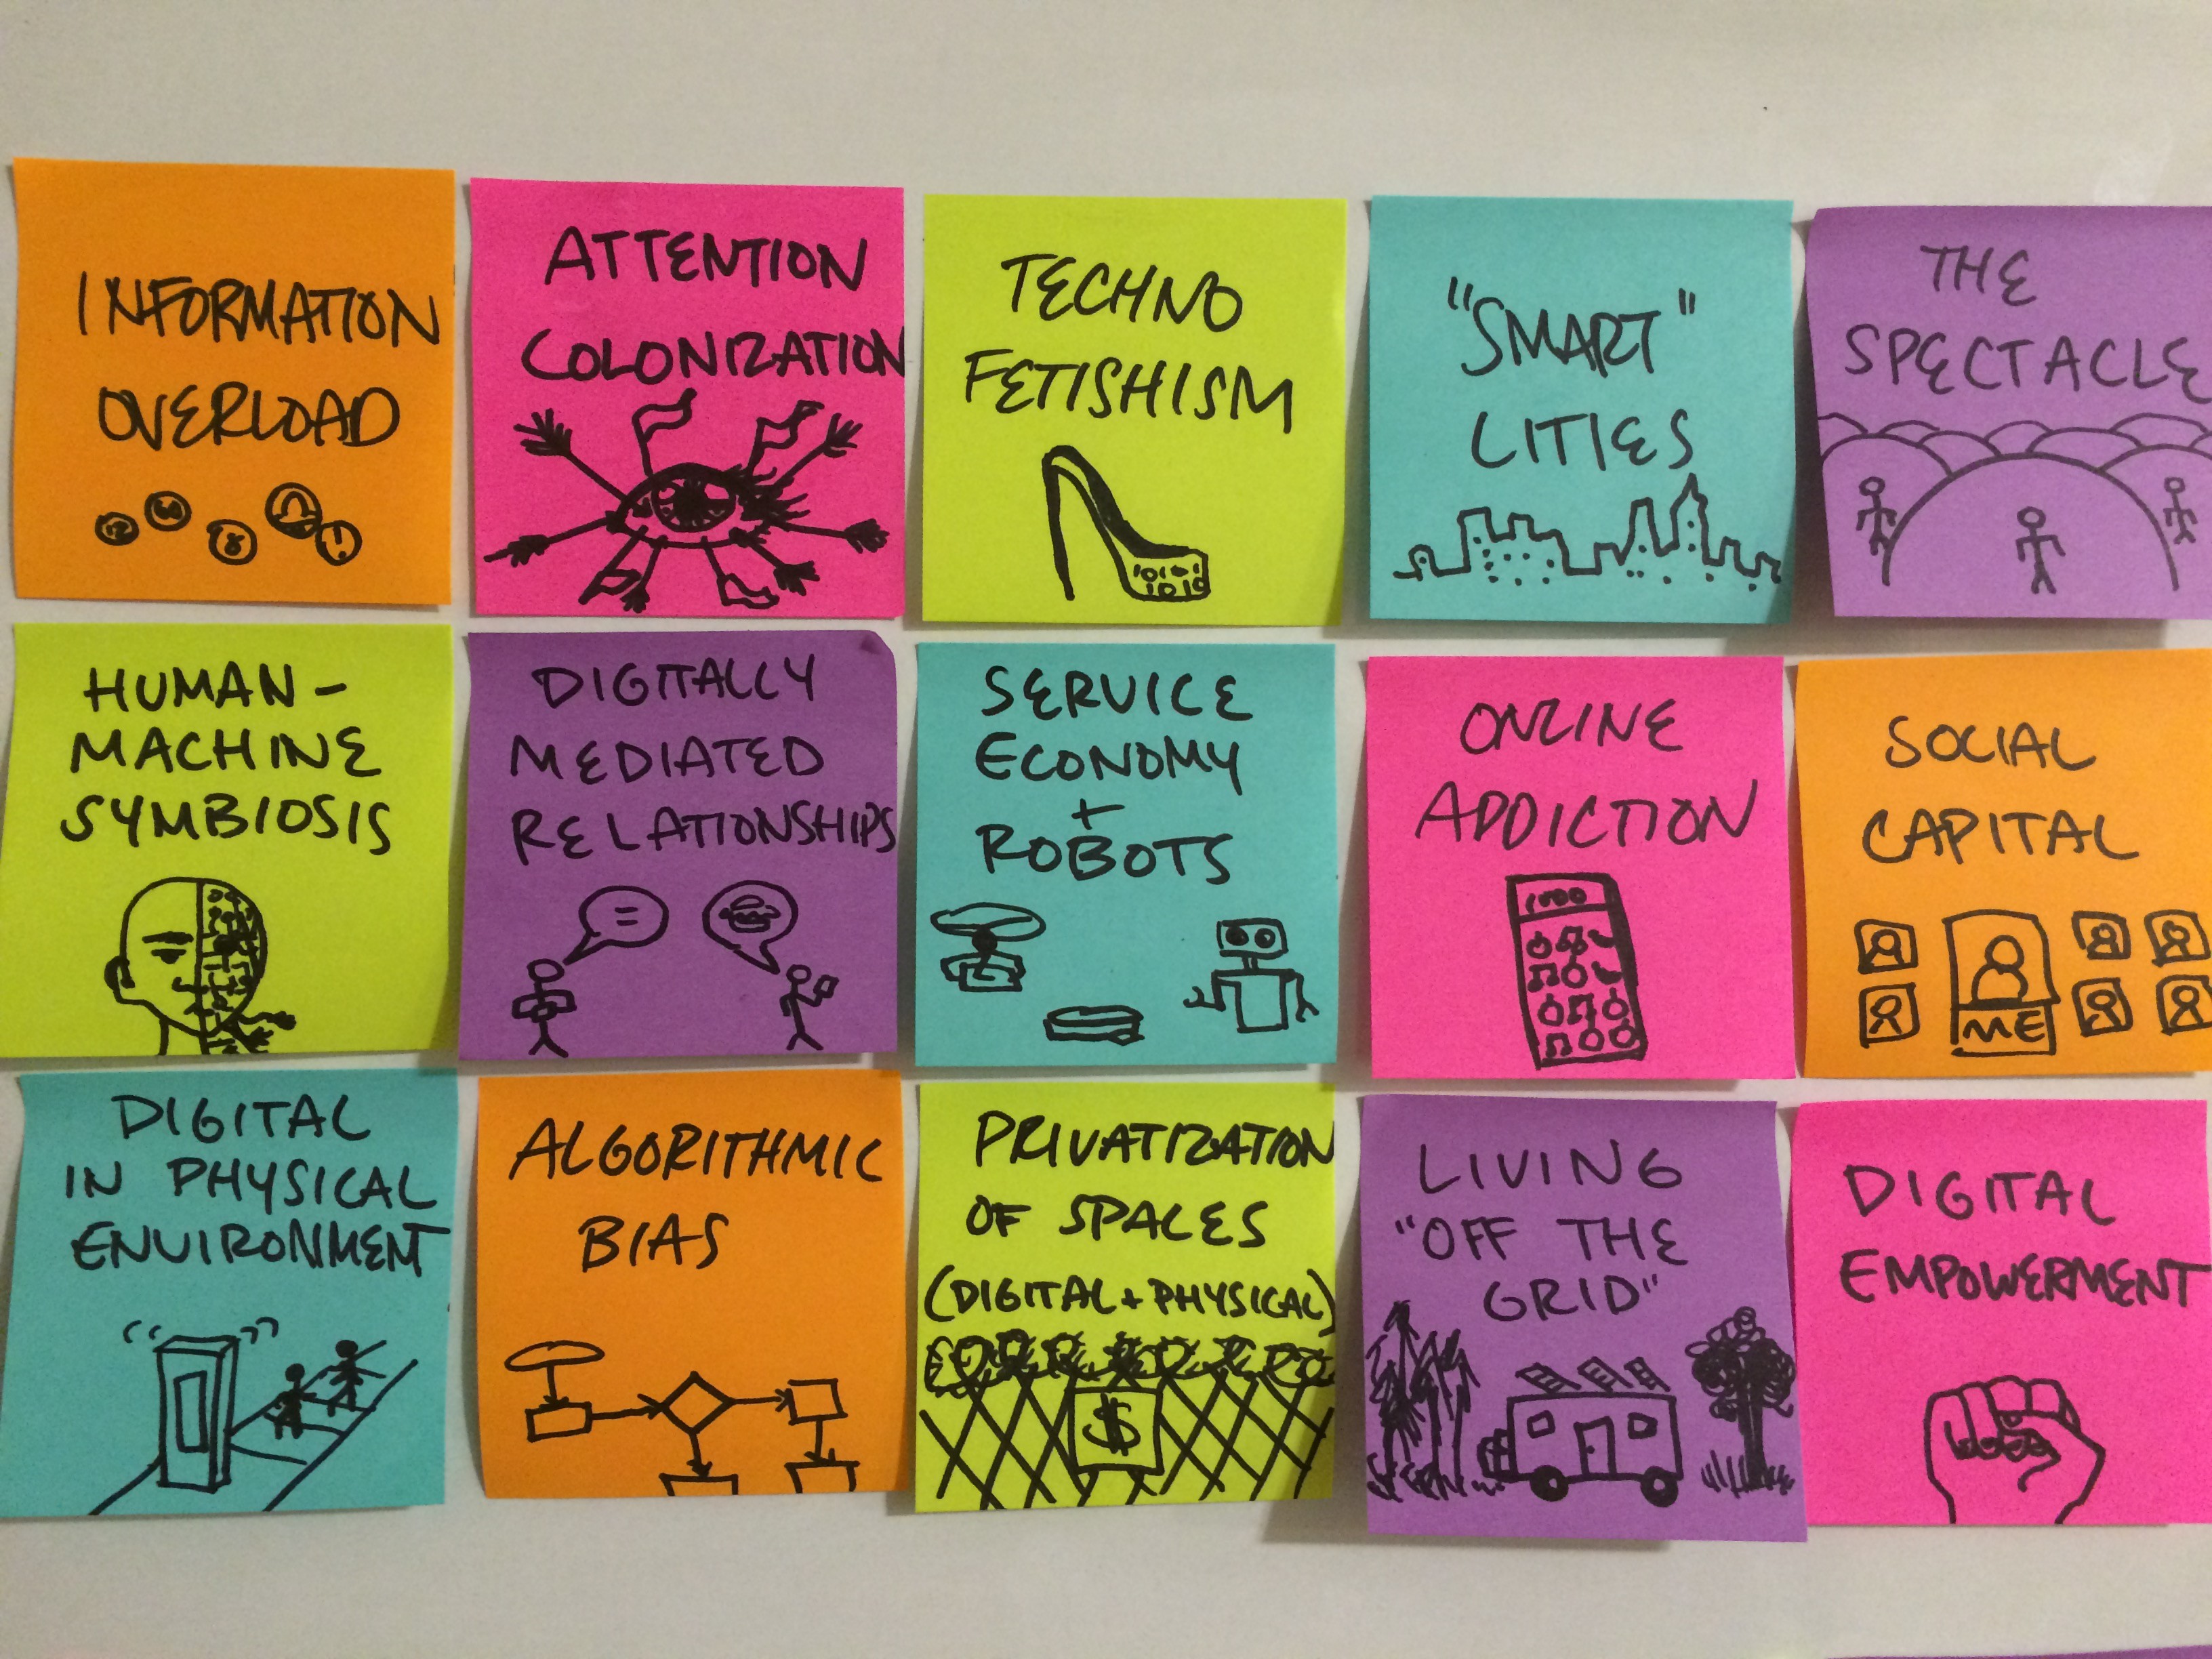 INFORMATION
OVERLOAD
ATTENTION
COLONIZATION
TECHNO
FETISHISM
"SMART"
CITIES
THE
SPECTACLE
HUMAN-
MACHINE
SYMBIOSIS
DIGITALLY
MEDIATED
RELATIONSHIPS
SERVICE
ECONOMY
+
ROBOTS
ONLINE
ADDICTION
SOCIAL
CAPITAL
ME
DIGITAL
IN PHYSICAL
ENVIRONMENT
ALGORITHMIC
BIAS
PRIVATIZATION
OF SPACES
(DIGITAL + PHYSICAL)
$
LIVING
"OFF THE
GRID"
DIGITAL
EMPOWERMENT